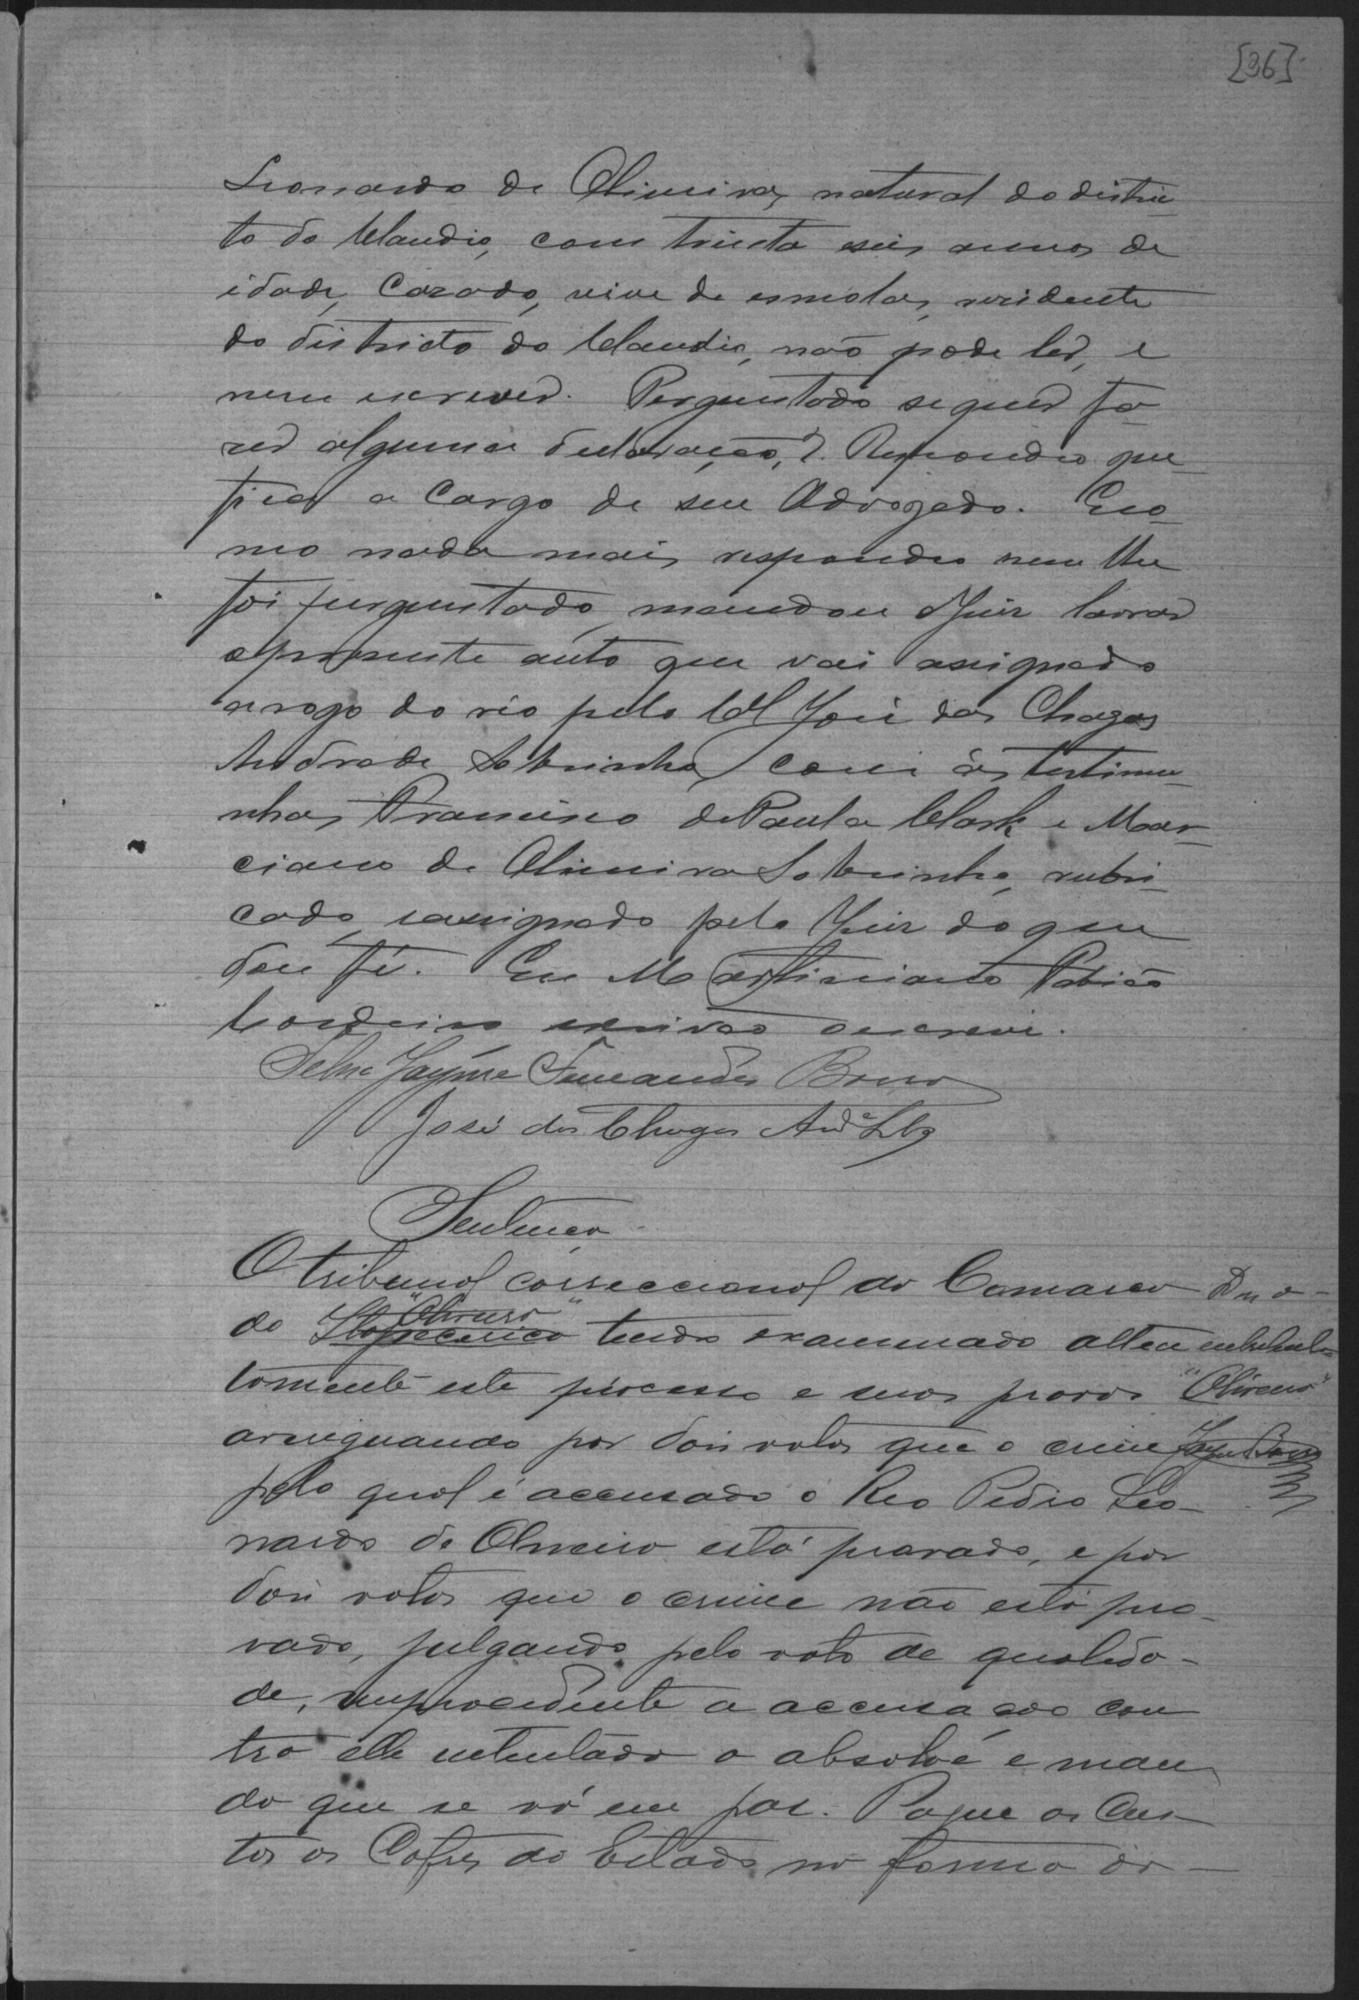 [36]
Leonardo de Oliveira, natural do distric-
to do Claudio, com trinta seis annos de
idade, Cazado, vive de esmolas, rezidente
do districto do Claudio, não pode ler, e
nem escrever. Perguntado se quer fa-
zer alguma declaração,? Respondeo que
fica a Cargo de seu Advogado. E co-
mo nada mais respondeo nem lhe
foi perguntado, mandou o Juiz lavrar
o presente auto que vai assignado
a rogo do réo pelo Cel José das Chagas
Andrade Sobrinho, com as testimu-
nhas Francisco de Paula Clark e Mar-
ciano de Oliveira Sobrinho, rubri-
cado, e assignado pelo Juiz do que
dou fé. Eu Martiniano
Cordeiro escrivão o escrevi.
Jayme Fernandes
José das Chagas And.e Sbo
Sentença
O tribunal correccional da Comarca
de "Oliveira" tendo examinado atten-
tamente este processo e suas provas
averiguando por dois votos que o crime
pelo qual é accusado o Reo Pedro Leo-
nardo de Oliveira está provado, e por
dois votos que o crime não está pro-
vado, julgando pelo voto de qualida-
de, improcedente a accusação con
tra elle intentada o absolve e man
da que se vá em paz. Pague as Cus-
tas os Cofres do Estado na forma da
Diz a
entrelinha
"Oliveira"